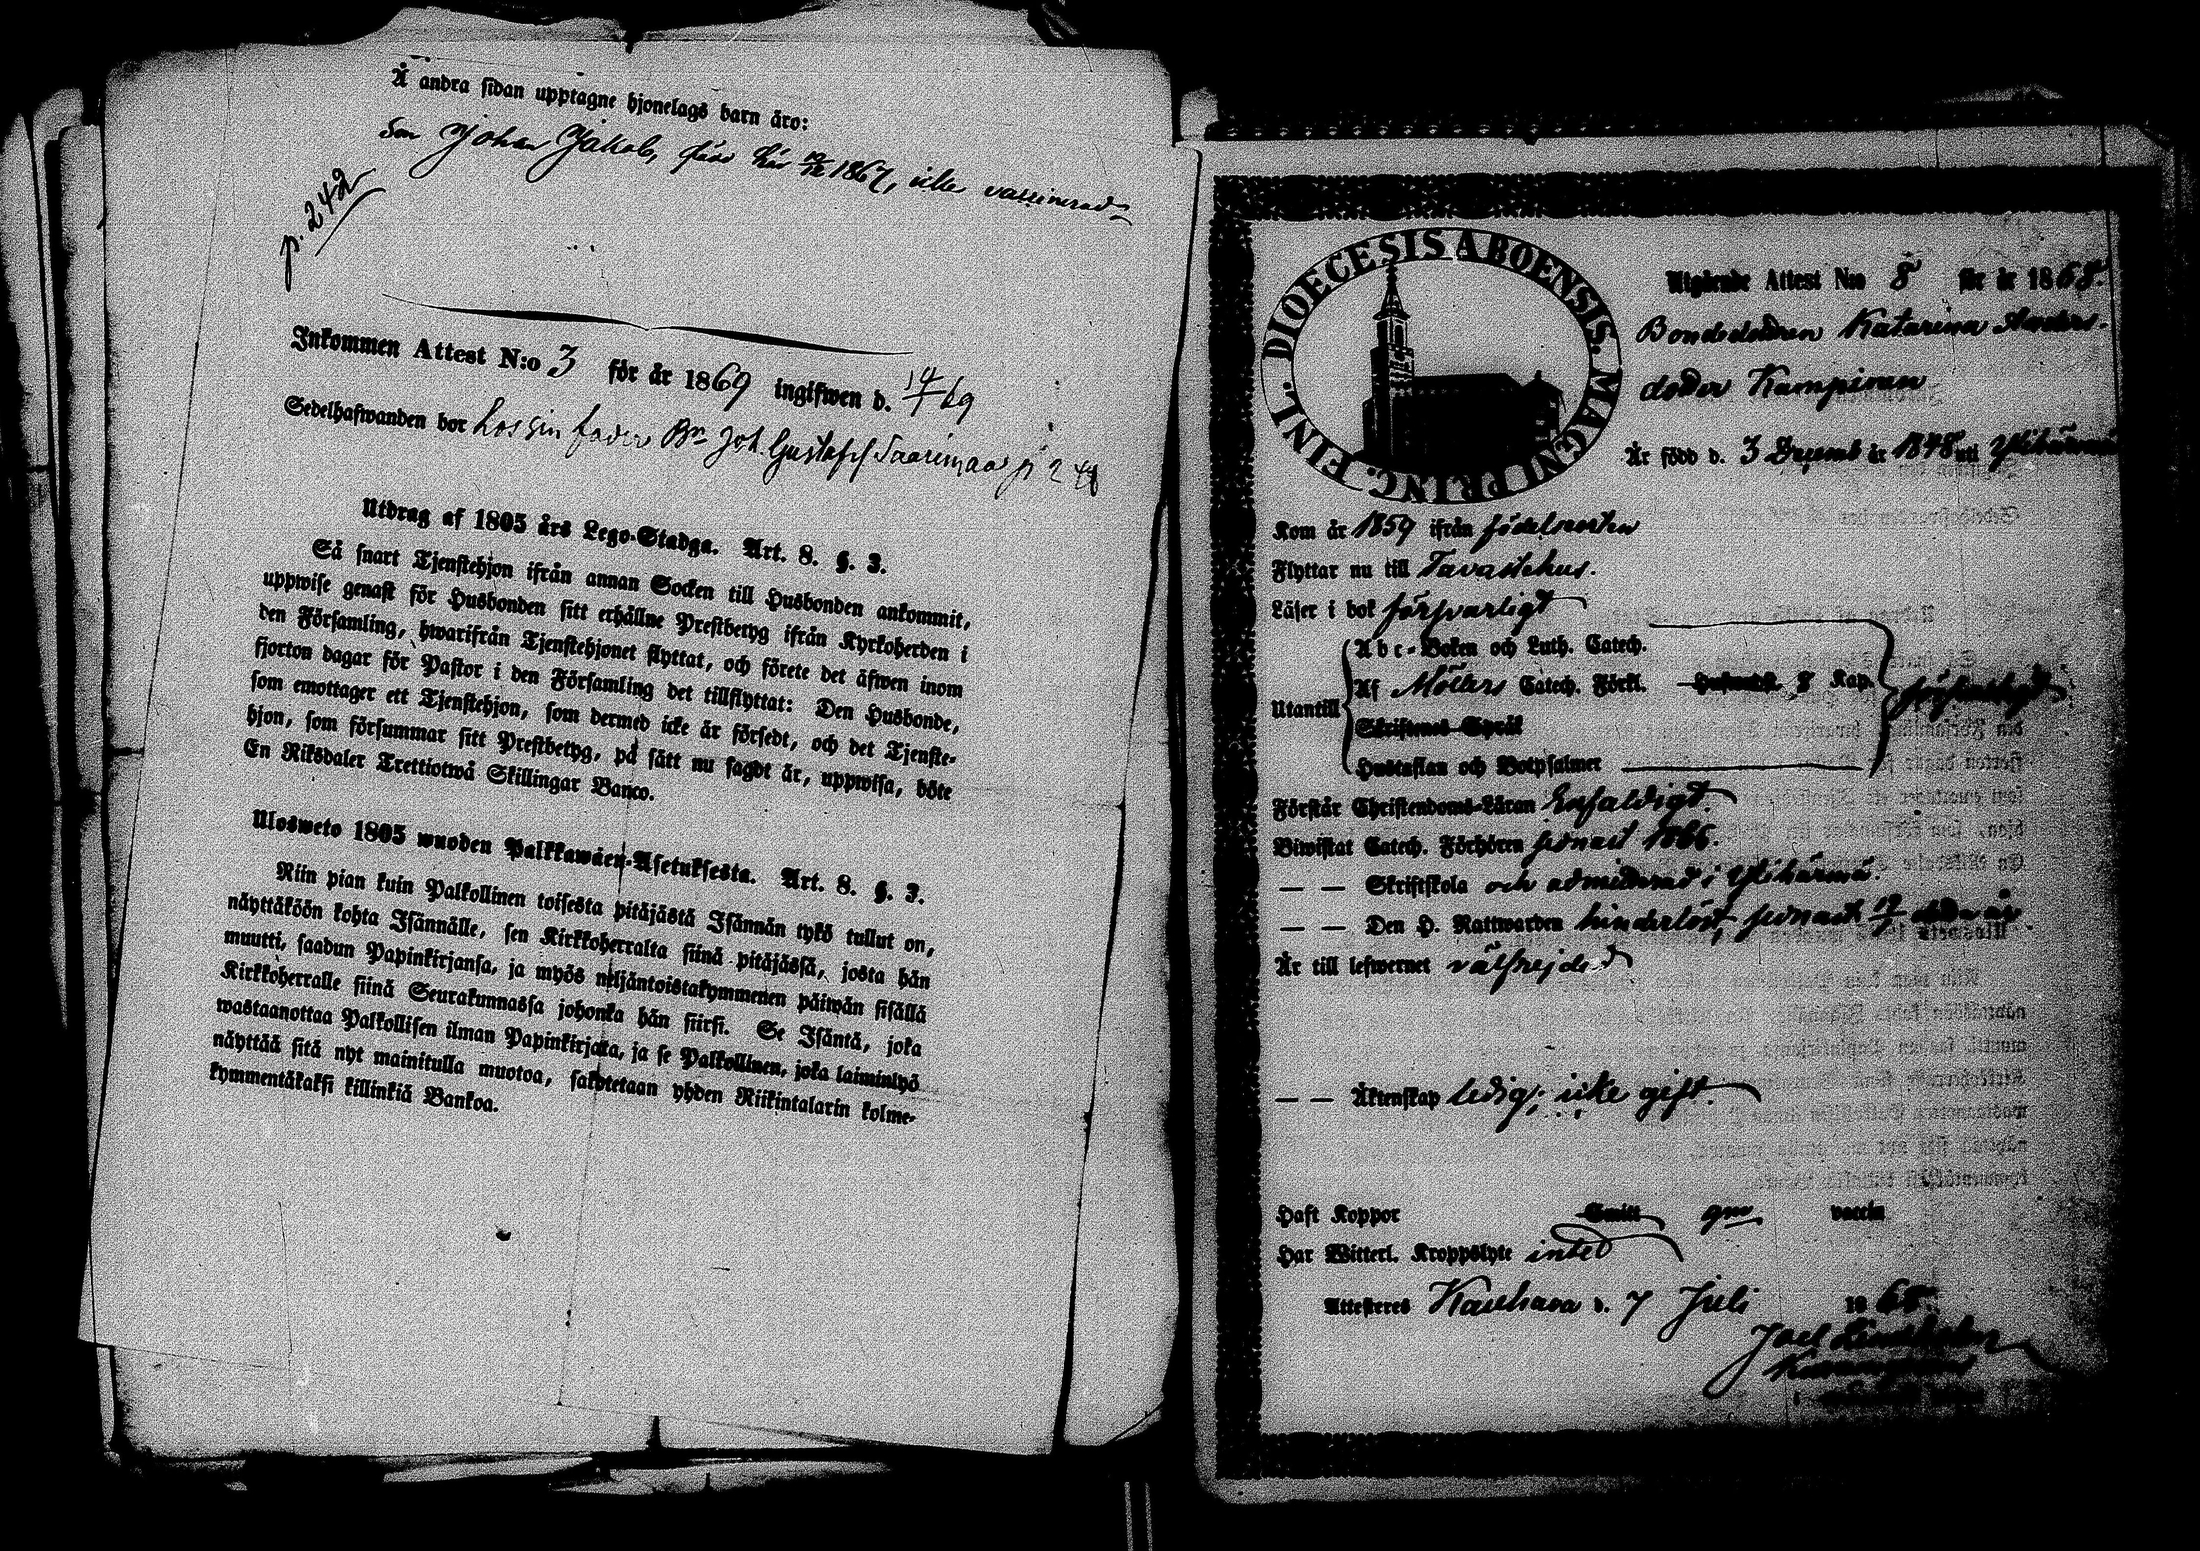 Å andra sidan upptagne hjonelags barn äro:
Son Johan Jakob, född här 1867, icke vaccinerad
p. 242
Inkommen Attest N:o 3 för år 1869 ingifwen d. 14/1 69
Sedelhafwanden bor hos sin fader Bn Joh. Gustafss Saarimaa p 2
Utdrag af 1805 års Lego-Stadga. Art. 8. §. 3.
Så snart Tjenstehjon ifrån annan Socken till Husbonden ankommit,
uppwise genast för Husbonden sitt erhållne Prestbetyg ifrån Kyrkoherden i
den Församling, hwarifrån Tjenstehjonet flyttat, och förete det äfwen inom
fjorton dagar för Pastor i den Församling det tillflyttat: Den Husbonde,
som emottager ett Tjenstehjon, som dermed icke är försedt, och det Tjenste-
hjon, som försummar sitt Prestbetyg, på sätt nu sagdt är, uppwisa, böte
En Riksdaler Trettiotwå Skillingar Banco.
Ulosweto 1805 wuoden Palkkawäen-Asetuksesta. Art. 8. §. 3.
Niin pian kuin Palkollinen toisesta pitäjästä Isännän tykö tullut on,
näyttäköön kohta Isännälle, sen Kirkkoherralta siinä pitäjässä, josta hän
muutti, saadun Papinkirjansa, ja myös neljäntoistakymmenen päiwän sisällä
Kirkkoherralle siinä Seurakunnassa johonka hän siirsi. Se Isäntä, joka
wastaanottaa Palkollisen ilman Papinkirjata, ja se Palkollinen, joka laiminlyö
näyttää sitä nyt mainitulla muotoa, sakotetaan yhden Riikintalarin kolme-
kymmentäkaksi killinkiä Bankoa.
DIOECESIS ABOENSIS. MAGNI PRINC. FINL.
Utgående Attest N:o 8 för år 1868.
Bondedottren Katarina Anders-
dotter Kampinen
Är född d. 3 Decemb år 1848 uti Ylihärmä
Kom år 1859 ifrån födelseorten
Flyttar nu till Tavastehus.
Läser i bok försvarligt
Abc-Boken och Luth. Catech.
Utantill Af Möllers Catech. Förkl. 8 Kap. försvarligt
Skriftenes Språk
Hustaflan och Botpsalmer
Förstår Christendoms-Läran enfaldigt.
Biwistat Catech. Förhören senast 1866.
— — Skriftskola och admitterad i Ylihärmä.
— — Den H. Nattwarden hinderlöst, senast
Är till lefwernet välfrejdad
— — Äktenskap ledig; icke gift.
Haft Koppor gm vaccin
Har Witterl. Kroppslyte intet
Attesteres Kauhava d. 7 Juli 1868.
Joel